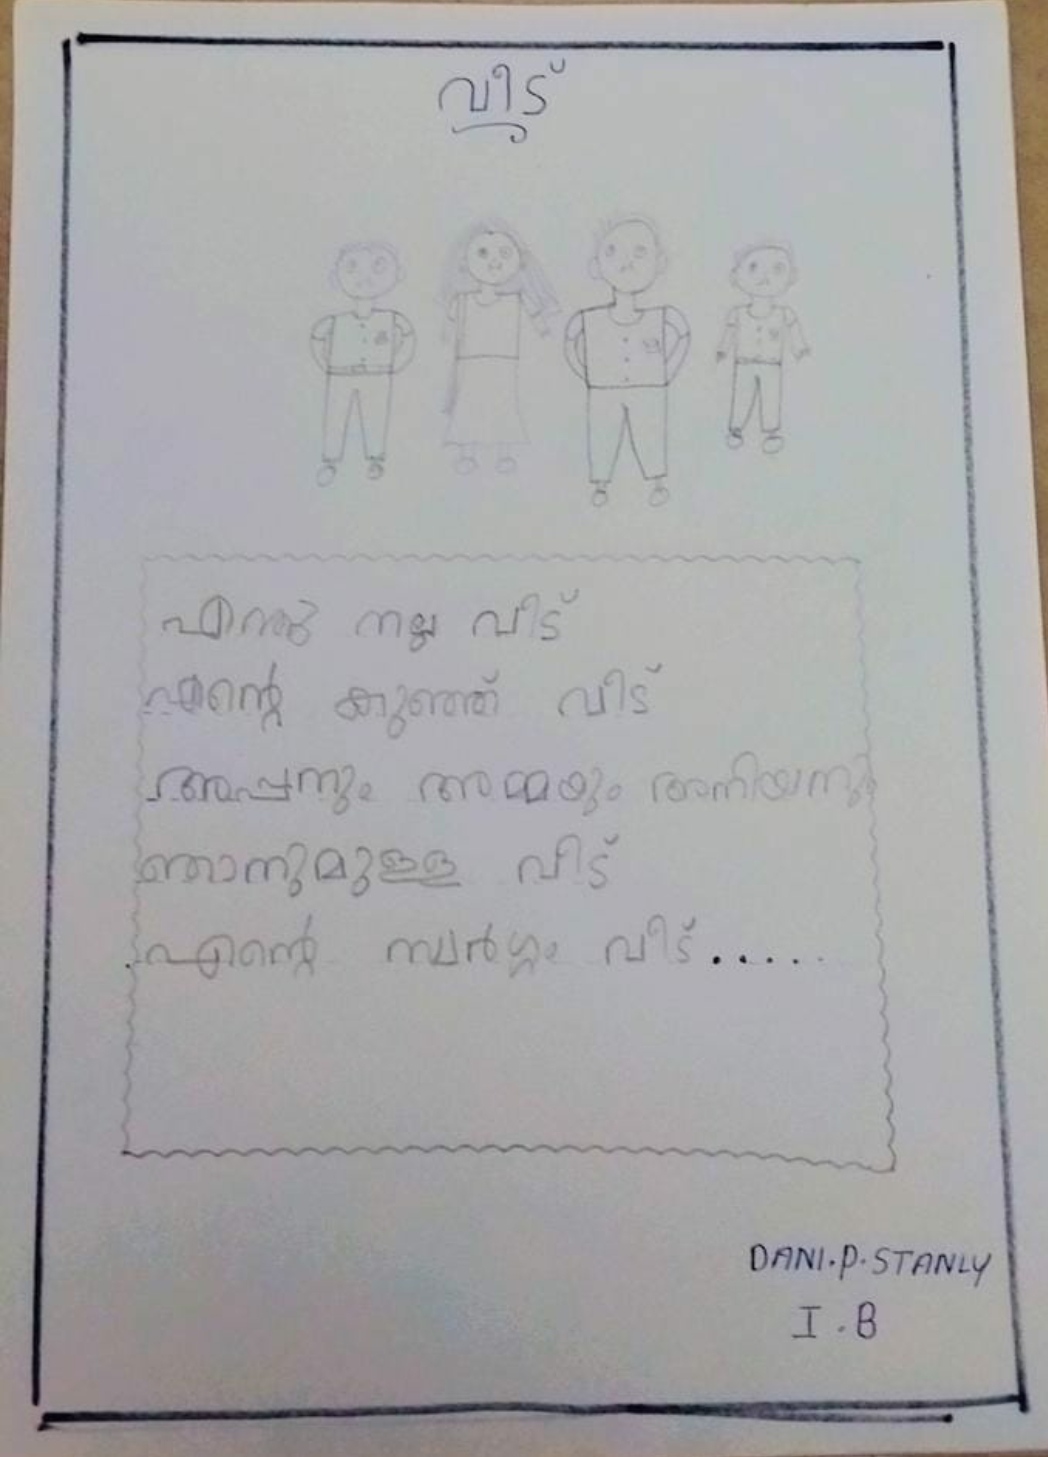 വീട്
എന്തു നല്ല വീട്
എന്റെ കുഞ്ഞ് വീട്
അപ്പനും അമ്മയും അനിയനും
ഞാനുമുള്ള വീട്
എന്റെ സ്വർഗ്ഗം വീട്.....
DANI.P.STANLY
I.B